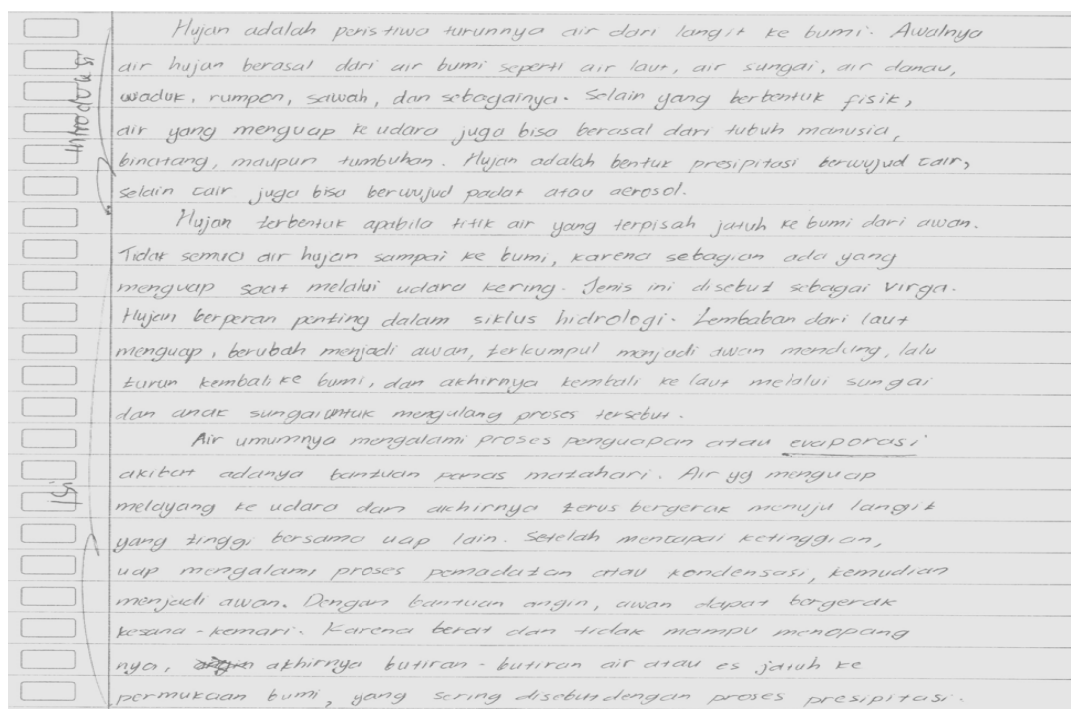 Hujan adalah peristiwa turunnya air dari langit ke bumi. Awalnya
air hujan berasal dari air bumi seperti air laut, air sungai, air danau,
waduk, rumpon, sawah, dan sebagainya. Selain yang berbentuk fisik,
air yang menguap ke udara juga bisa berasal dari tubuh manusia,
binatang, maupun tumbuhan. Hujan adalah bentuk presipitasi berwujud cair,
selain cair juga bisa berwujud padat atau aerosol.
Introduksi
Hujan terbentuk apabila titik air yang terpisah jatuh ke bumi dari awan.
Tidak semua air hujan sampai ke bumi, karena sebagian ada yang
menguap saat melalui udara kering. Jenis ini disebut sebagai virga.
Hujan berperan penting dalam siklus hidrologi. Lembaban dari laut
menguap, berubah menjadi awan, terkumpul menjadi awan mendung, lalu
turun kembali ke bumi, dan akhirnya kembali ke laut melalui sungai
dan anak sungai untuk mengulang proses tersebut.
Air umumnya mengalami proses penguapan atau evaporasi
akibat adanya bantuan panas matahari. Air yg menguap
melayang ke udara dan akhirnya terus bergerak menuju langit
yang tinggi bersama uap lain. Setelah mencapai ketinggian,
uap mengalami proses pemadatan atau kondensasi, kemudian
menjadi awan. Dengan bantuan angin, awan dapat bergerak
kesana-kemari. Karena berat dan tidak mampu menopang
nya, akhirnya butiran-butiran air atau es jatuh ke
permukaan bumi, yang sering disebut dengan proses presipitasi.
Isi